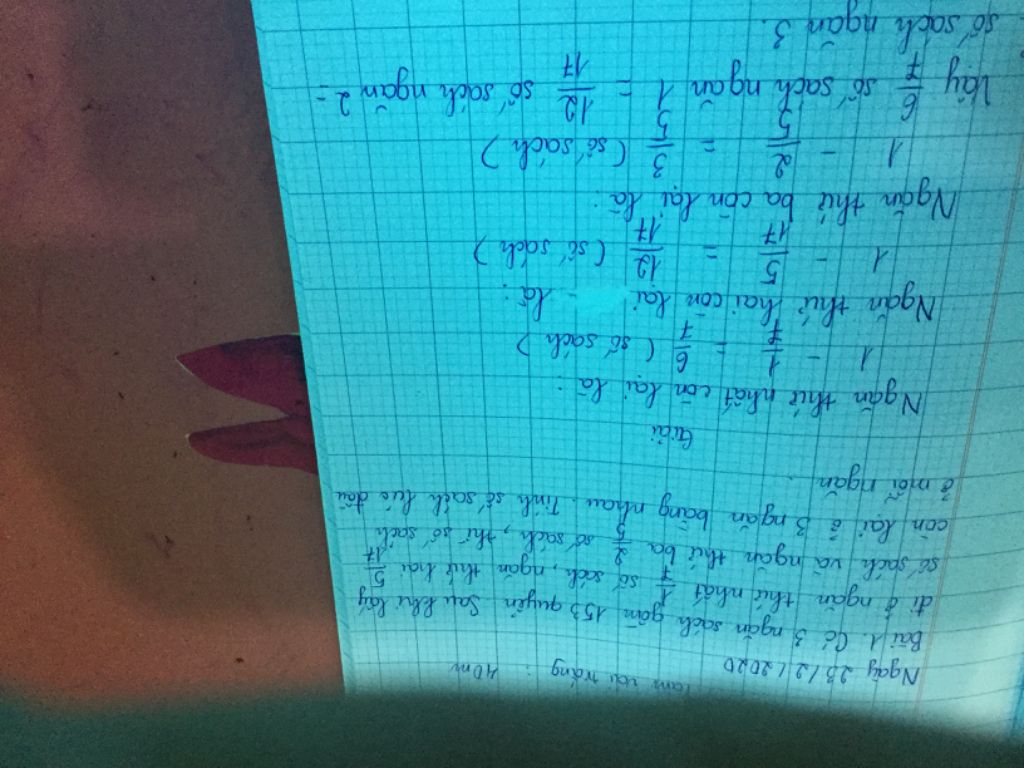 Tấm vải trắng : 40m
Ngày 23/2/2020
Bài 1. Có 3 ngăn sách gồm 153 quyển. Sau khi lấy
đi ở ngăn thứ nhất 1/7 số sách, ngăn thứ hai 5/17
số sách và ngăn thứ ba 2/5 số sách, thì số sách
còn lại ở 3 ngăn bằng nhau. Tính số sách lúc đầu
ở mỗi ngăn.
Giải
Ngăn thứ nhất còn lại là :
1 - 1/7 = 6/7 (số sách)
Ngăn thứ hai còn lại là :
1 - 5/17 = 12/17 (số sách)
Ngăn thứ ba còn lại là :
1 - 2/5 = 3/5 (số sách)
Vậy 6/7 số sách ngăn 1 = 12/17 số sách ngăn 2 =
3/5 số sách ngăn 3.